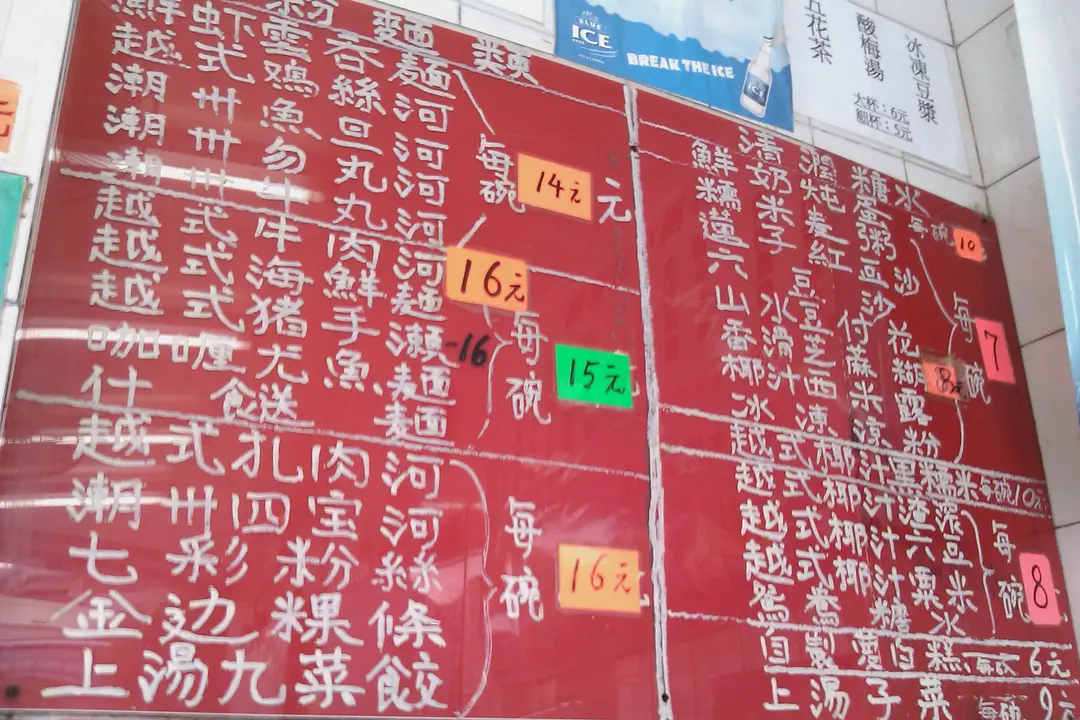 BLUE
ICE
BREAK THE ICE
五花茶
酸梅湯
冰凍豆漿
大杯：6元
細杯：5元
粉麵類
鮮虾雲吞麵
越式鸡絲河
潮卅魚旦河
潮卅勿丸河
潮卅牛丸河
每碗 14元 元
越式牛肉河
16元
越式海鮮麵
越式猪手瀨-16
咖喱尤魚麵
什食送麵
每碗 15元
越式扎肉河
潮卅四宝河
七彩米粉絲
金边粿條
上湯九菜餃
每碗 16元
清潤糖水
鮮奶炖蛋 每碗 10
糯米麦粥
蓮子紅豆沙
六豆沙
山水豆付花
香滑芝蔴糊 8元
椰汁西米露
冰凉涼粉
每碗 7
越式椰汁黑糯米 每碗10元
越式椰汁渣
越式椰汁六豆
越式椰汁粟米
糖水
每碗 8
自製蘿白糕 每碗 6元
上湯子菜 每碗 9元